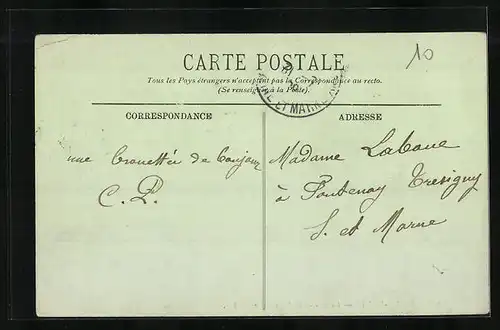 10
CARTE POSTALE
Tous les Pays étrangers n'acceptent pas la Correspondance au recto.
(Se renseigner à la Poste).
ET MARNE
CORRESPONDANCE
ADRESSE
une de
C. P.
Madame Labaue
à Fontenay Tresigny
S. et Marne